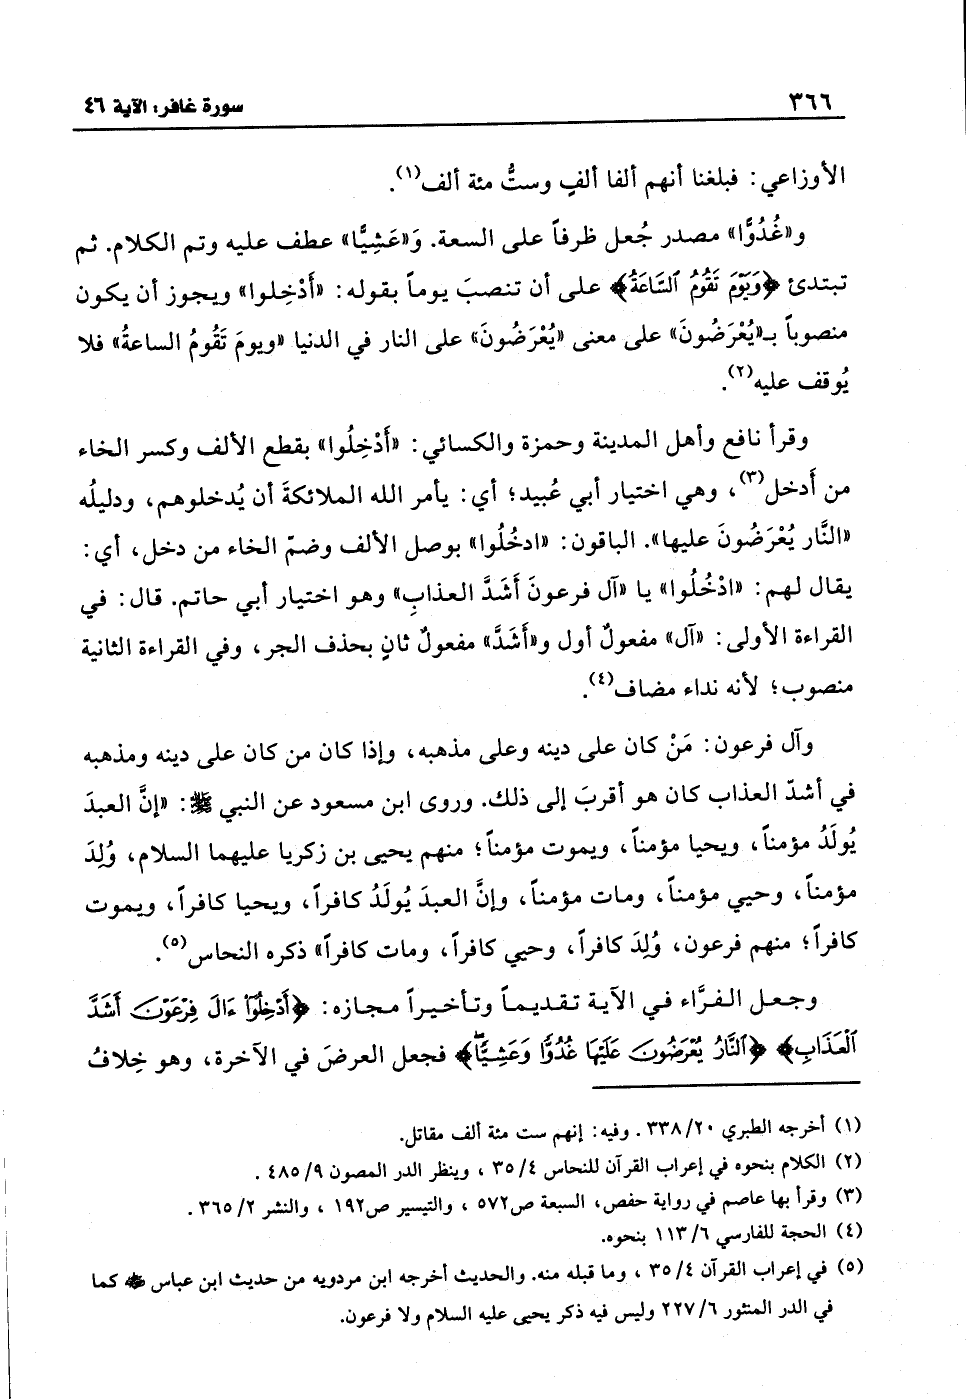 ٣٦٦ سورة غافر: الآية ٤٦
الأوزاعي: فبلغنا أنهم ألفا ألفٍ وستُّ مئة ألف(١).
و«غُدُوًّا» مصدر جُعل ظرفاً على السعة. وَ«عَشِيًّا» عطف عليه وتم الكلام. ثم
تبتدئ ﴿وَيَوْمَ تَقُومُ ٱلسَّاعَةُ﴾ على أن تنصبَ يوماً بقوله: «أَدْخِلوا» ويجوز أن يكون
منصوباً بـ«يُعْرَضُونَ» على معنى «يُعْرَضُونَ» على النار في الدنيا «ويومَ تَقُومُ الساعةُ» فلا
يُوقف عليه(٢).
وقرأ نافع وأهل المدينة وحمزة والكسائي: «أَدْخِلُوا» بقطع الألف وكسر الخاء
من أَدخل(٣)، وهي اختيار أبي عُبيد؛ أي: يأمر الله الملائكةَ أن يُدخلوهم، ودليلُه
«النَّار يُعْرَضُونَ عليها». الباقون: «ادخُلُوا» بوصل الألف وضمّ الخاء من دخل، أي:
يقال لهم: «ادْخُلُوا» يا «آل فرعونَ أَشَدَّ العذابِ» وهو اختيار أبي حاتم. قال: في
القراءة الأولى: «آل» مفعولٌ أول و«أَشَدَّ» مفعولٌ ثانٍ بحذف الجر، وفي القراءة الثانية
منصوب؛ لأنه نداء مضاف(٤).
وآل فرعون: مَنْ كان على دينه وعلى مذهبه، وإذا كان من كان على دينه ومذهبه
في أشدّ العذاب كان هو أقربَ إلى ذلك. وروى ابن مسعود عن النبي ﷺ: «إنَّ العبدَ
يُولَدُ مؤمناً، ويحيا مؤمناً، ويموت مؤمناً؛ منهم يحيى بن زكريا عليهما السلام، وُلِدَ
مؤمناً، وحيي مؤمناً، ومات مؤمناً، وإنَّ العبدَ يُولَدُ كافراً، ويحيا كافراً، ويموت
كافراً؛ منهم فرعون، وُلِدَ كافراً، وحيي كافراً، ومات كافراً» ذكره النحاس(٥).
وجعل الفرَّاء في الآية تقديماً وتأخيراً مجازه: ﴿أَدْخِلُوٓا۟ ءَالَ فِرْعَوْنَ أَشَدَّ
ٱلْعَذَابِ﴾ ﴿ٱلنَّارُ يُعْرَضُونَ عَلَيْهَا غُدُوًّا وَعَشِيًّا﴾ فجعل العرضَ في الآخرة، وهو خِلافُ
(١) أخرجه الطبري ٢٠/٣٣٨. وفيه: إنهم ست مئة ألف مقاتل.
(٢) الكلام بنحوه في إعراب القرآن للنحاس ٤/٣٥، وينظر الدر المصون ٩/٤٨٥.
(٣) وقرأ بها عاصم في رواية حفص، السبعة ص٥٧٢، والتيسير ص١٩٢، والنشر ٢/٣٦٥.
(٤) الحجة للفارسي ٦/١١٣ بنحوه.
(٥) في إعراب القرآن ٤/٣٥، وما قبله منه. والحديث أخرجه ابن مردويه من حديث ابن عباس ﵁ كما
في الدر المنثور ٦/٢٢٧ وليس فيه ذكر يحيى عليه السلام ولا فرعون.